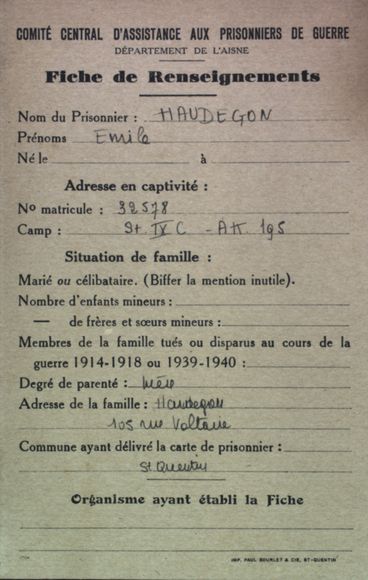 COMITÉ CENTRAL D'ASSISTANCE AUX PRISONNIERS DE GUERRE
DÉPARTEMENT DE L'AISNE
Fiche de Renseignements
Nom du Prisonnier : HAUDEGON
Prénoms Emile
Né le à
Adresse en captivité :
No matricule : 32578
Camp : St. IX C - AK 195
Situation de famille :
Marié ou célibataire. (Biffer la mention inutile).
Nombre d'enfants mineurs :
— de frères et sœurs mineurs :
Membres de la famille tués ou disparus au cours de la
guerre 1914-1918 ou 1939-1940 :
Degré de parenté : mère
Adresse de la famille : Haudegon
105 rue Voltaire
Commune ayant délivré la carte de prisonnier :
St Quentin
Organisme ayant établi la Fiche
IMP. PAUL BOURLET & CIE, ST-QUENTIN